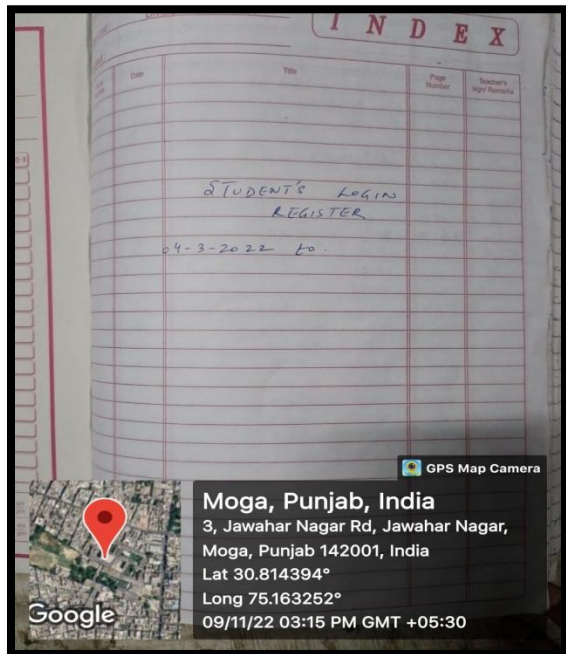 INDEX
Date
Title
Page
Number
Teacher's
Sign/Remarks
STUDENT'S LOGIN
REGISTER
04-3-2022 to.
GPS Map Camera
Moga, Punjab, India
3, Jawahar Nagar Rd, Jawahar Nagar,
Moga, Punjab 142001, India
Lat 30.814394°
Long 75.163252°
09/11/22 03:15 PM GMT +05:30
Google